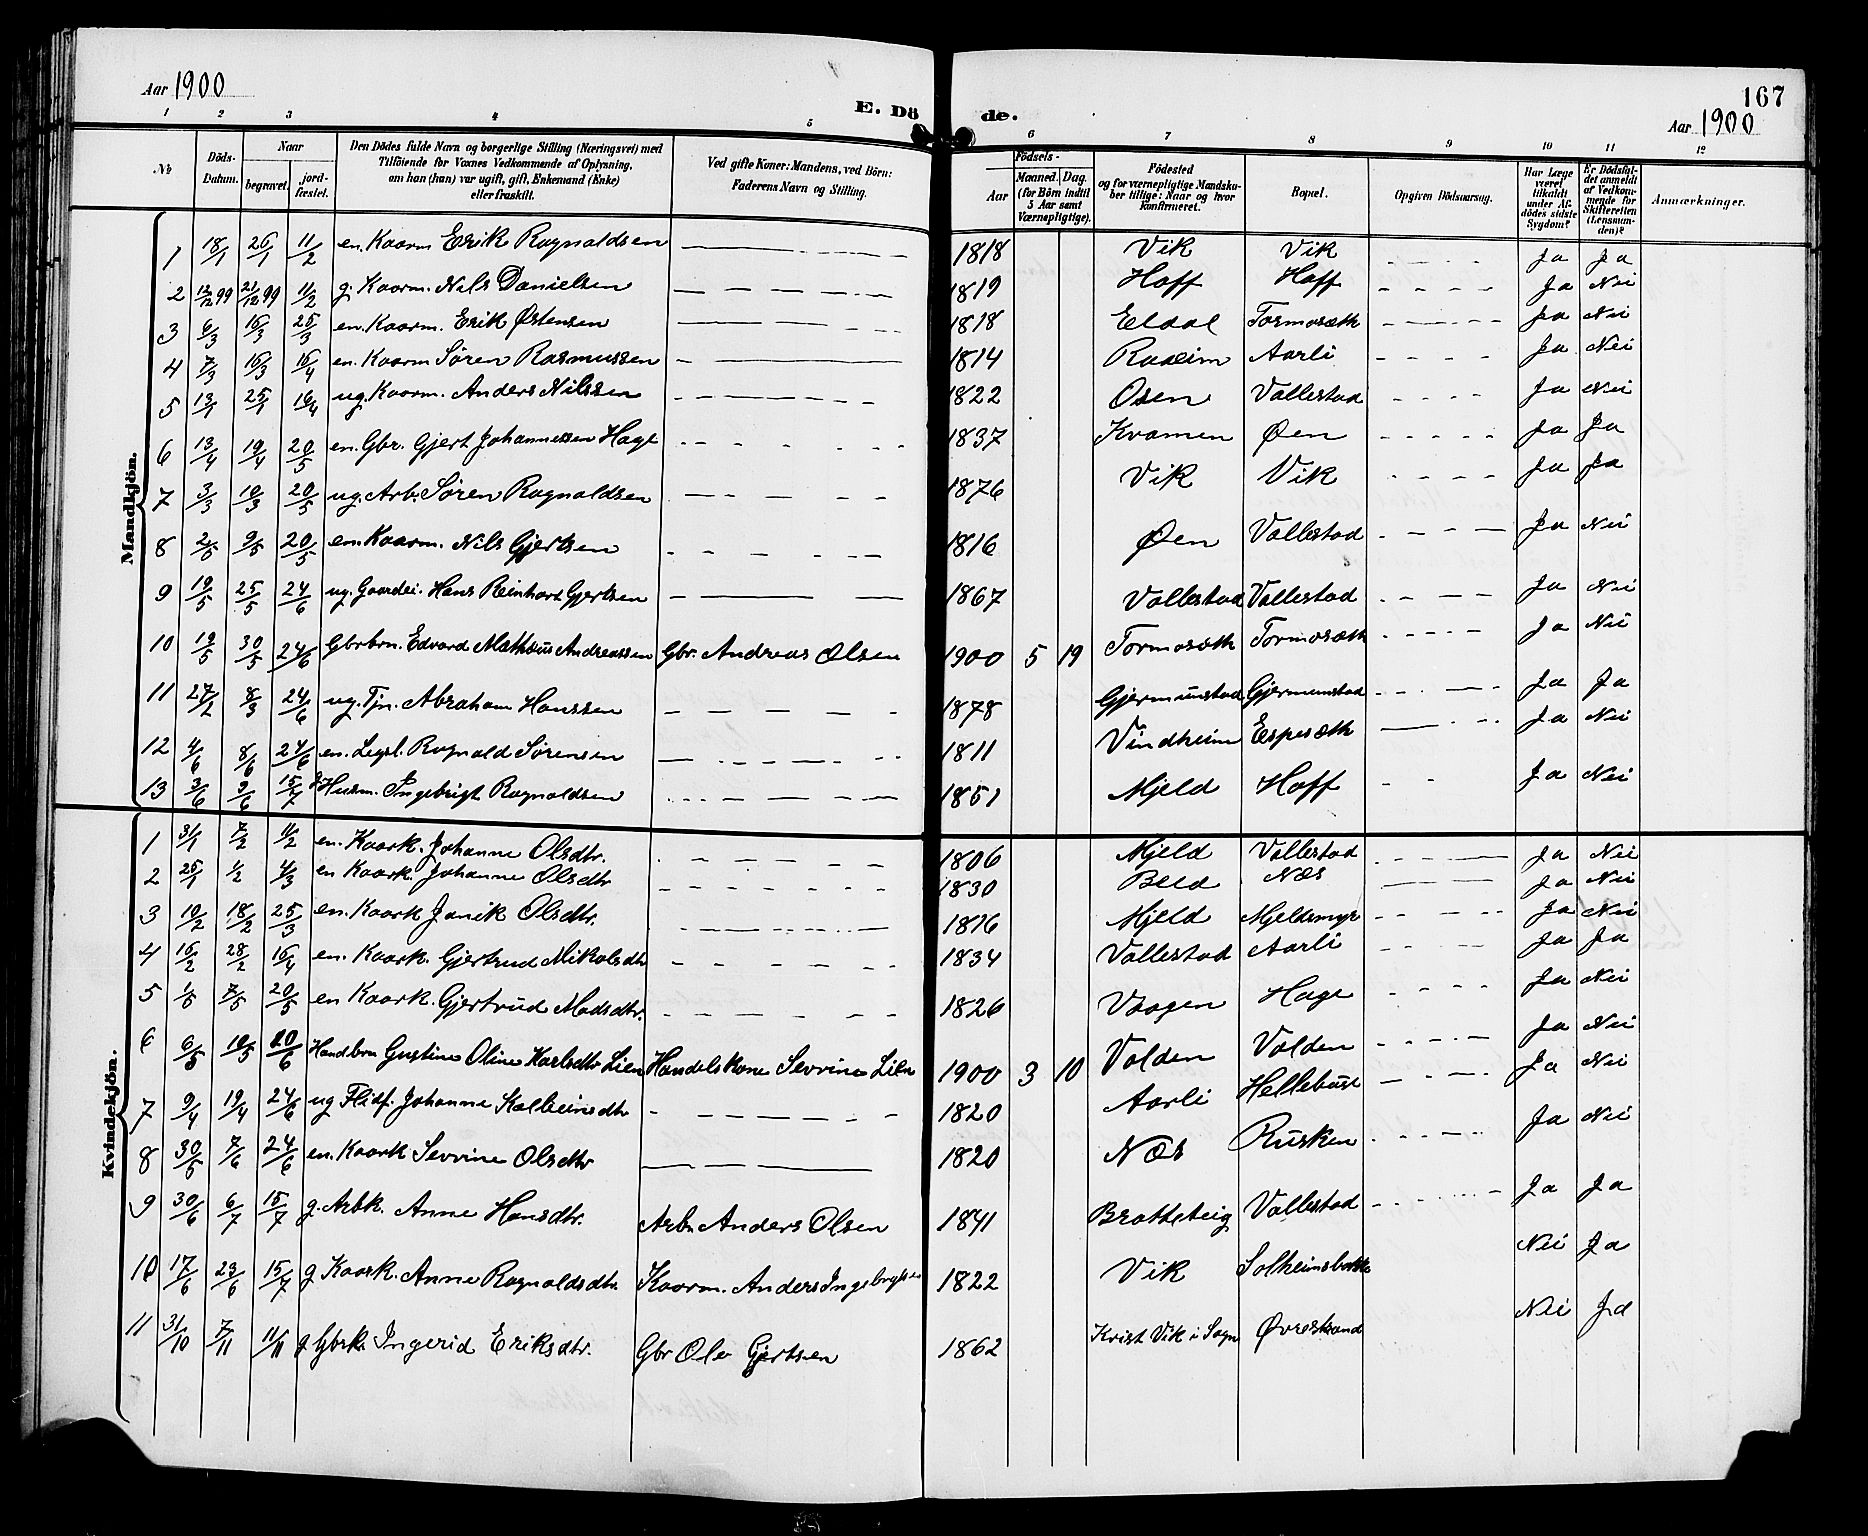 Aar 1900
E. Döde.
167
Aar 1900
1 2 3 4 5 6 7 8 9 10 11 12
№ | Döds-Datum. | Naar begravet. | jordfæstet. | Den Dödes fulde Navn og borgerlige Stilling (Næringsvei) med Tilföiende for Voxnes Vedkommende af Oplysning, om han (hun) var ugift, gift, Enkemand (Enke) eller fraskilt. | Ved gifte Koner: Mandens, ved Börn: Faderens Navn og Stilling. | Födsels- Aar | Maaned. Dag. (for Börn indtil 5 Aar samt Værnepligtige). | Födested og for værnepligtige Mandskaber tillige: Naar og hvor konfirmeret. | Bopæl. | Opgiven Dödsaarsag. | Har Læge været tilkaldt under Afdödes sidste Sygdom? | Er Dödsfaldet anmeldt af Vedkommende for Skifteretten (Lensmanden)? | Anmærkninger.
Mandkjön.
1 18/1 26/1 11/2 en. Kaarm Erik Ragnaldsen 1818 Vik Vik Ja Ja
2 12/12 99 21/12 99 11/2 g. Kaarm. Nils Danielsen 1819 Hoff Hoff Ja Nei
3 6/3 16/3 25/3 en. Kaarm. Erik Østensen 1818 Eldal Tormosæth Ja Nei
4 7/3 16/3 16/4 en. Kaarm Sören Rasmussen 1814 Raaeim Aarli Ja Nei
5 13/1 25/1 16/4 ug. Kaarm. Anders Nilssen 1822 Osen Vallestad Ja Nei
6 13/4 19/4 20/5 en. Gbr. Gjert Johannessen Hage 1837 Kvamen Øen Ja Ja
7 3/3 10/3 20/5 ug. Arb. Sören Ragnaldsen 1876 Vik Vik Ja Ja
8 2/5 9/5 20/5 en. Kaarm. Nils Gjertsen 1816 Øen Vallestad Ja Nei
9 19/5 25/5 24/6 ug. Gaardei. Hans Reinhart Gjertsen 1867 Vallestad Vallestad Ja Nei
10 19/5 30/5 24/6 Gbrbrn. Edvard Mathæus Andreassen Gbr. Andreas Olsen 1900 5 19 Tormosæth Tormosæth Ja Nei
11 27/2 8/3 24/6 ug. Tjn. Abraham Hanssen 1878 Gjermunstad Gjermunstad Ja Ja
12 4/6 8/6 24/6 en. Legsl. Ragnald Sørensen 1811 Vindheim Espesæth Ja Nei
13 3/6 9/6 15/7 g. Husm. Ingebrigt Ragnaldsen 1851 Mjeld Hoff Ja Nei
Kvindekjön.
1 31/1 7/2 11/2 en. Kaark. Johanne Olsdtr. 1806 Mjeld Vallestad Ja Nei
2 25/1 1/2 4/3 en Kaark. Johanne Olsdtr 1830 Beld Næs Ja Nei
3 10/2 18/2 25/3 en. Kaark Janik Olsdtr. 1816 Mjeld Mjeldsmyr Ja Nei
4 16/2 28/2 16/4 en. Kaark. Gjertrud Mikalsdtr 1834 Vallestad Aarli Ja Ja
5 1/5 7/5 20/5 en Kaark. Gjertrud Madsdtr. 1826 Vaagen Hage Ja Nei
6 6/5 10/5 20/6 Handbrn Gustine Oline Karlsdtr Lien Handelskone Sevrine Lien 1900 3 10 Valden Valden Ja Nei
7 9/4 19/4 24/6 ug Flisf. Johanne Kolbeinsdtr 1820 Aarli Hellebust Ja Nei
8 30/5 7/6 24/6 en. Kaark Sevrine Olsdtr 1820 Næs Rusken Ja Nei
9 30/6 6/7 15/7 g. Arbk. Anne Hansdtr. Arb. Anders Olsen 1841 Bratteteig Vallestad Ja Ja
10 17/6 23/6 15/7 g Kaark. Anne Ragnaldsdtr. Kaarm. Anders Ingebrigtsen 1822 Vik Solheimsbakke Nei Ja
11 31/10 7/11 11/11 g Gbrk. Ingerid Eriksdtr. Gbr Ole Gjertsen 1862 Krist Vik i Sogn Øvrestrand Nei Ja